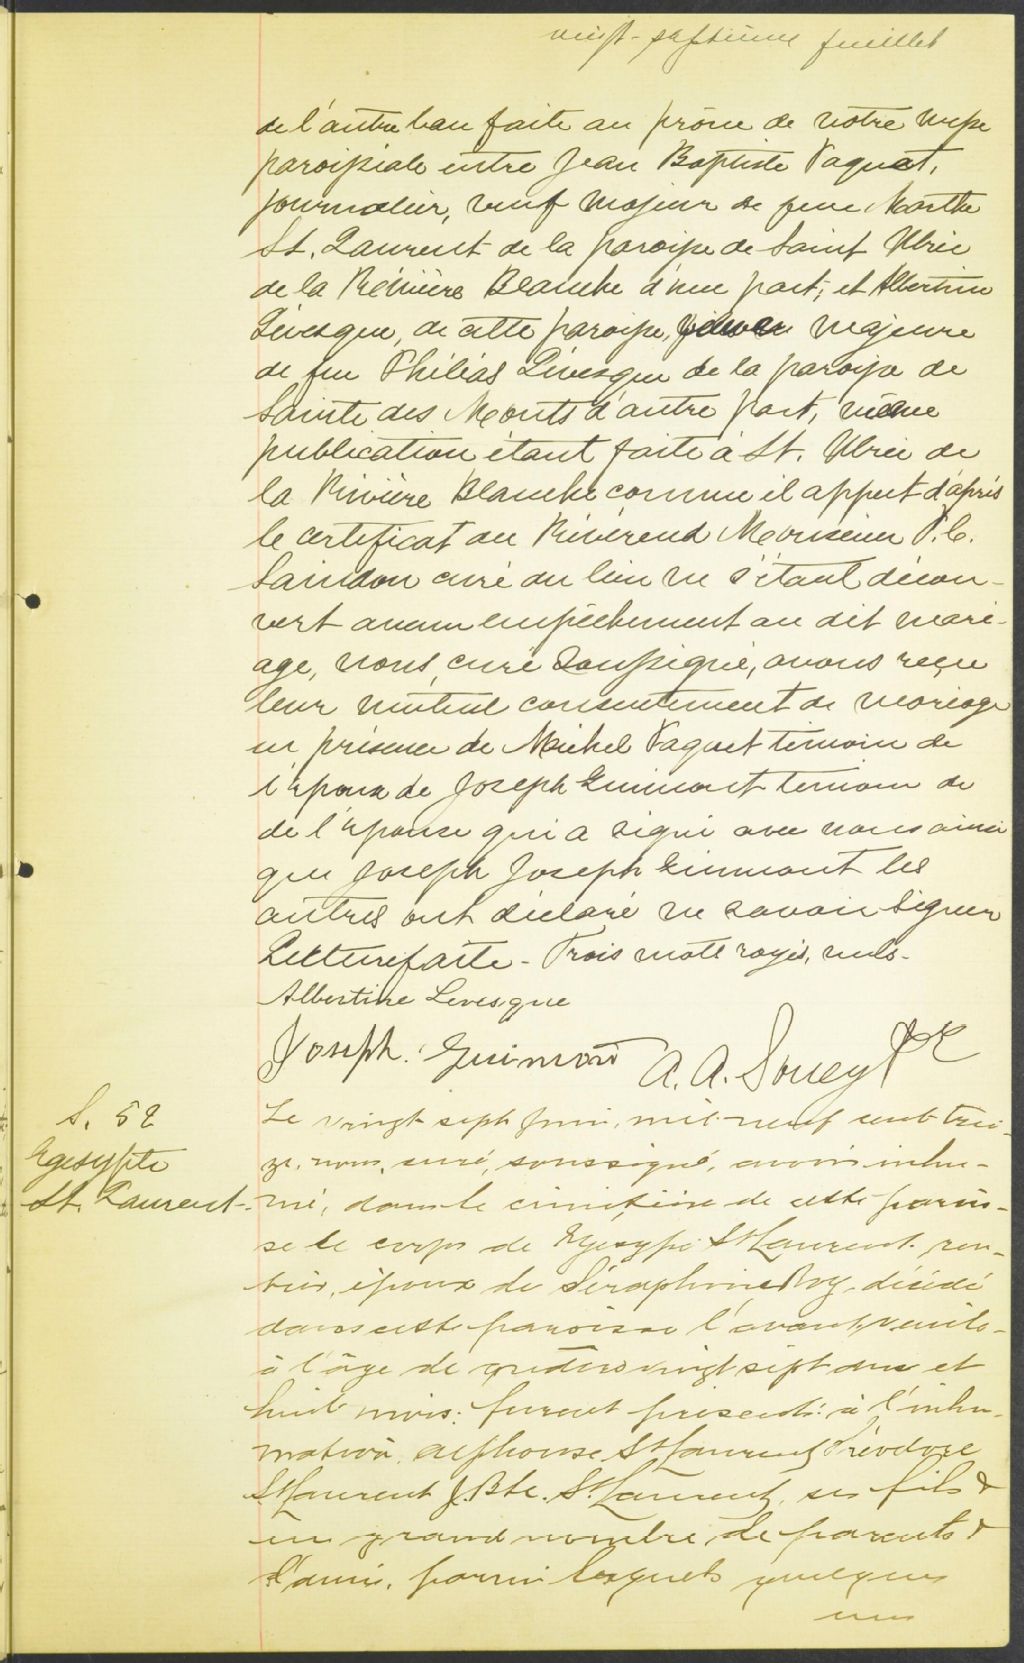 vingt-septième feuillet
de l'autre ban faite au prône de notre messe
paroissiale entre Jean Baptiste Paquet,
journalier, veuf majeur de feue Marthe
St. Laurent de la paroisse de Saint Ulric
de la Rivière Blanche d'une part; et Albertine
Lévesque, de cette paroisse, majeure
de feu Philéas Lévesque de la paroisse de
Sainte des Monts d'autre part, même
publication étant faite à St. Ulric de
la Rivière Blanche comme il appert d'après
le certificat du Révérend Monsieur P. C.
Saindon curé du lieu ne s'étant décou-
vert aucun empêchement au dit mari-
age, nous, curé soussigné, avons reçu
leur mutuel consentement de mariage
en présence de Michel Paquet témoin de
l'époux de Joseph Guimont témoin de
de l'épouse qui a signé avec nous ainsi
que Joseph Joseph Guimont les
autres ont déclaré ne savoir signer
Lecture faite - Trois mots rayés, nuls-
Albertine Levesque
Joseph. Guimont A. A. Soucy Ptre
S. 52
Egesypte
St. Laurent-
Le vingt sept juin, mil-neuf cent trei-
ze, nous, curé, soussigné, avons inhu-
mé, dans le cimetière de cette parois-
se le corps de Egesype St Laurent. ren-
tier, époux de Séraphine Roy, décédé
dans cette paroisse l'avant-veille-
à l'âge de quatre vingt sept ans et
huit mois: furent présents: à l'inhu-
mation, Alphonse St Laurent, Théodore
St Laurent J. Bte. St Laurent, ses fils &
un grand nombre, de parents &
d'amis, parmi lesquels quelques
uns